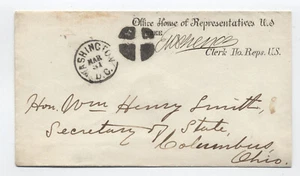 Office House of Representatives U.S
Clerk Ho. Reps. U.S.
WASHINGTON
MAR
31
D.C.
Hon. Wm Henry Smith,
Secretary of State,
Columbus,
Ohio.